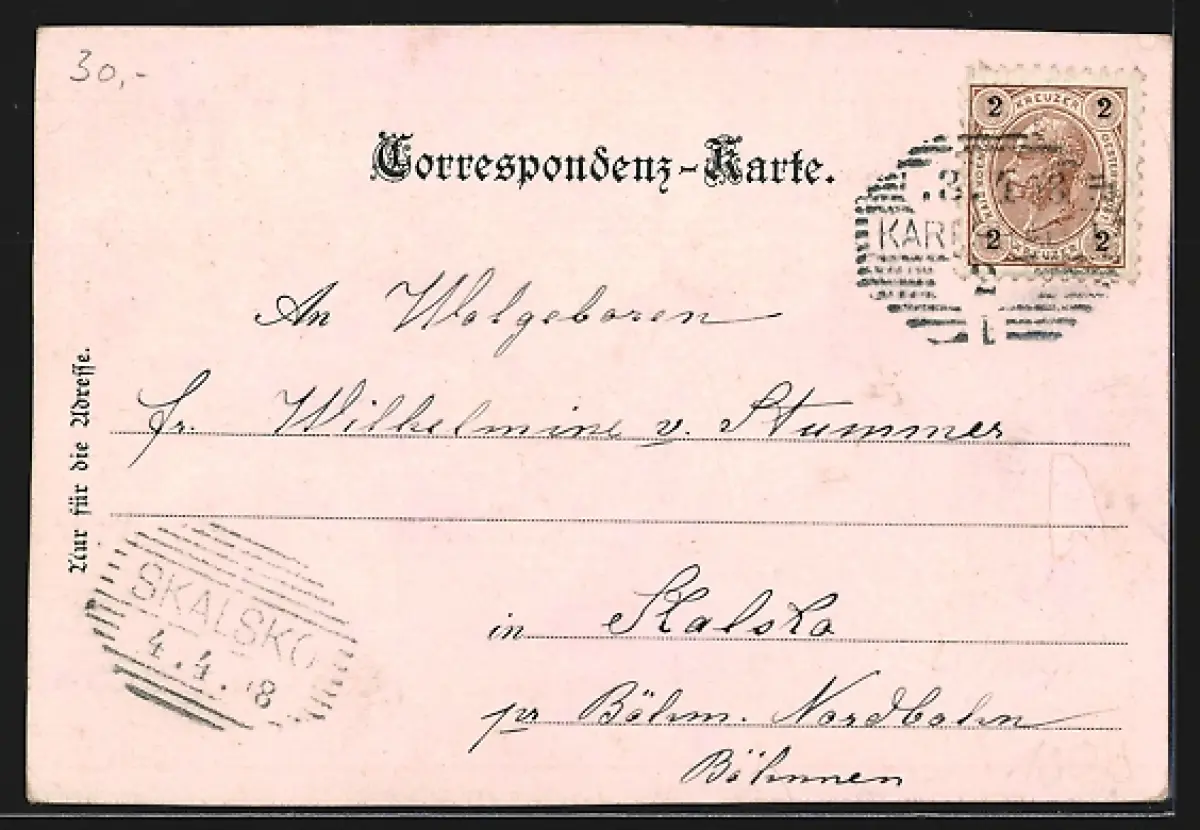 30,-
Correspondenz-Karte.
2 KREUZER 2
2 KREUZER 2
KARL
2
1
An Wolgeboren
fr. Wilhelmine v. Stummer
Nur für die Adresse.
SKALSKO
4.4. 98
in Skalsko
pr Böhm. Nordbahn
Böhmen